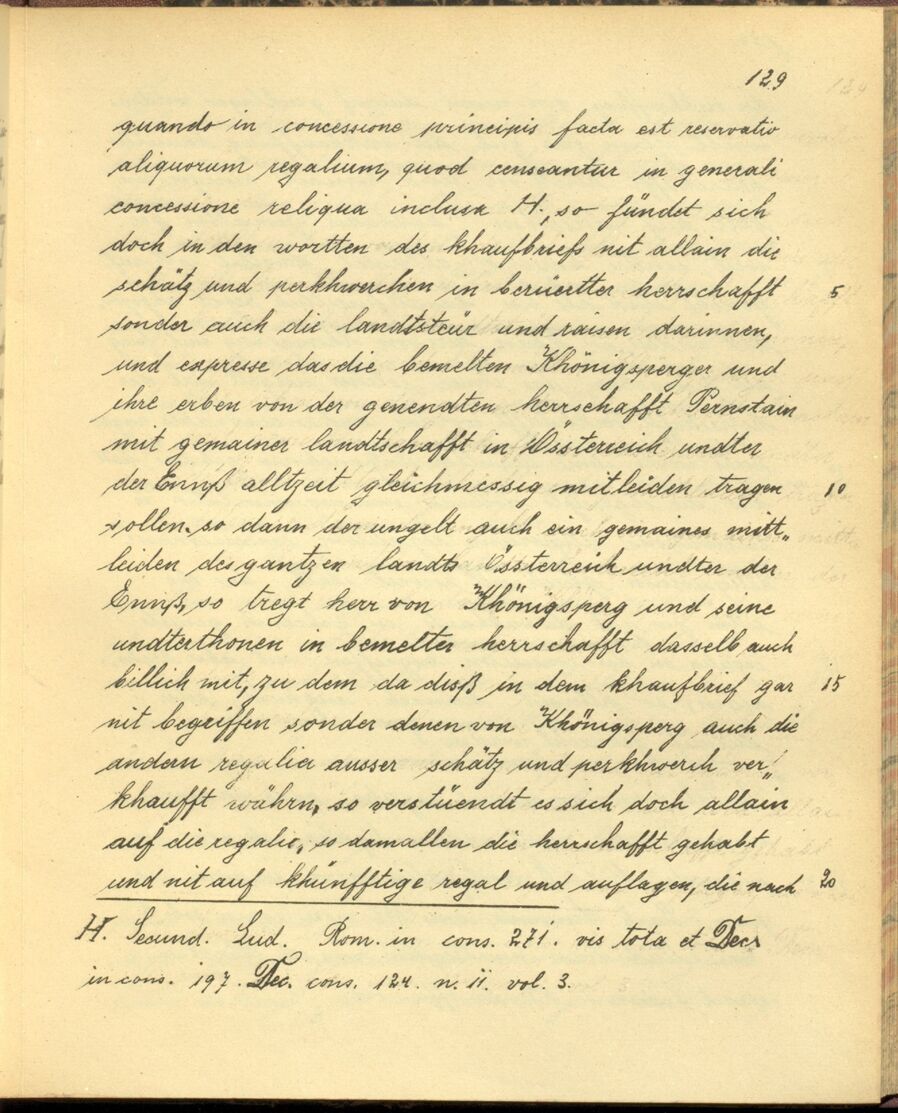 129
quando in concessione principis facta est reservatio
aliquorum regalium, quod censeantur in generali
concessione reliqua inclusa H., so fündet sich
doch in den wortten des khaufbriefs nit allain die
schätz und perkhwerchen in berüertter herrschafft 5
sonder auch die landtsteür und raisen darinnen,
und expresse das die bemelten Khönigsperger und
ihre erben von der genendten herrschafft Pernstain
mit gemainer landtschafft in Össterreich undter
der Ennß alltzeit gleichmessig mitleiden tragen 10
sollen. so dann der ungelt auch ein gemaines mitt„
leiden des gantzen landts Össterreich undter der
Ennß, so tregt herr von Khönigsperg und seine
undterthonen in bemelter herrschafft dasselb auch
billich mit, zu dem da disß in dem khaufbrief gar 15
nit begriffen sonder denen von Khönigsperg auch die
andern regalia ausser schätz und perkhwerch ver„
khaufft währn, so verstüendt es sich doch allain
auf die regalia, so damallen die herrschafft gehabt
und nit auf khünfftige regal und auflagen, die nach 20
H. Secund. Lud. Rom. in cons. 271. vis tota et Dec.
in cons. 197. Dec. cons. 124. n. 11. vol. 3.